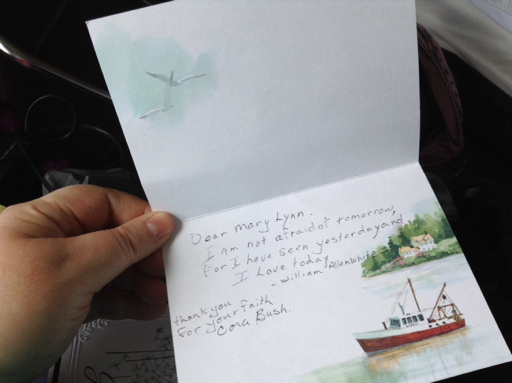 Dear Mary Lynn.
I am not afraid of tomorrow,
for I have seen yesterday and
I Love today
- William Allen White
thank you
for your faith
Cora Bush.